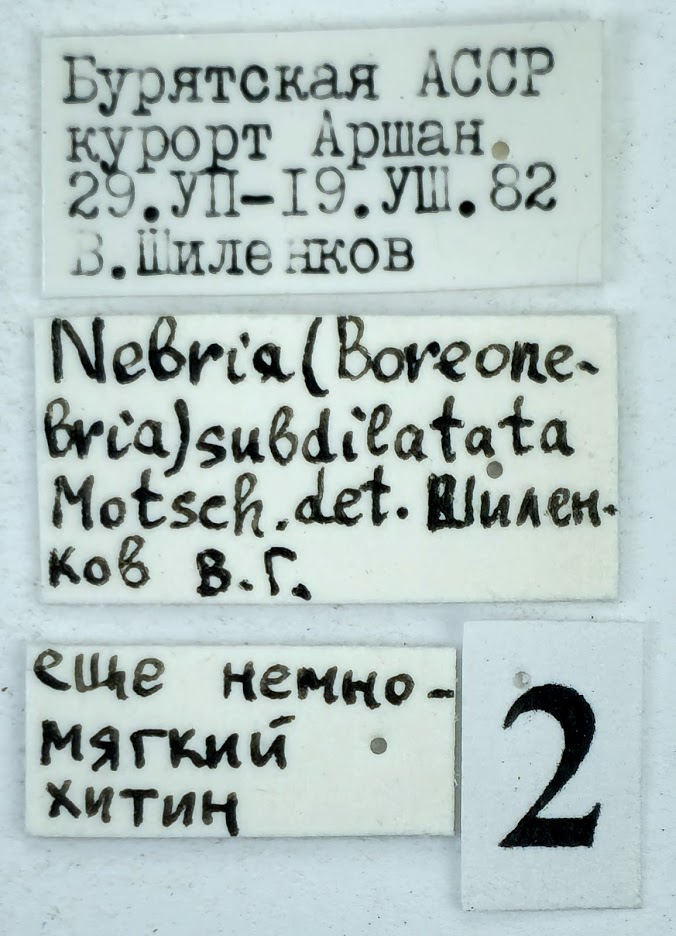 Бурятская АССР
курорт Аршан
29.УП-I9.УШ.82
В.Шиленков
Nebria (Boreone-
bria) subdilatata
Motsch. det. Шилен-
ков В.Г.
еще немно-
мягкий
хитин
2